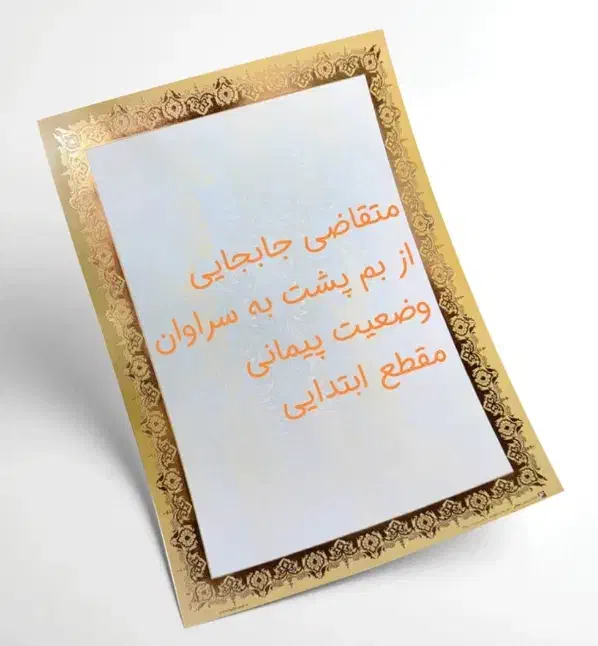 متقاضی جابجایی
از بم پشت به سراوان
وضعیت پیمانی
مقطع ابتدایی